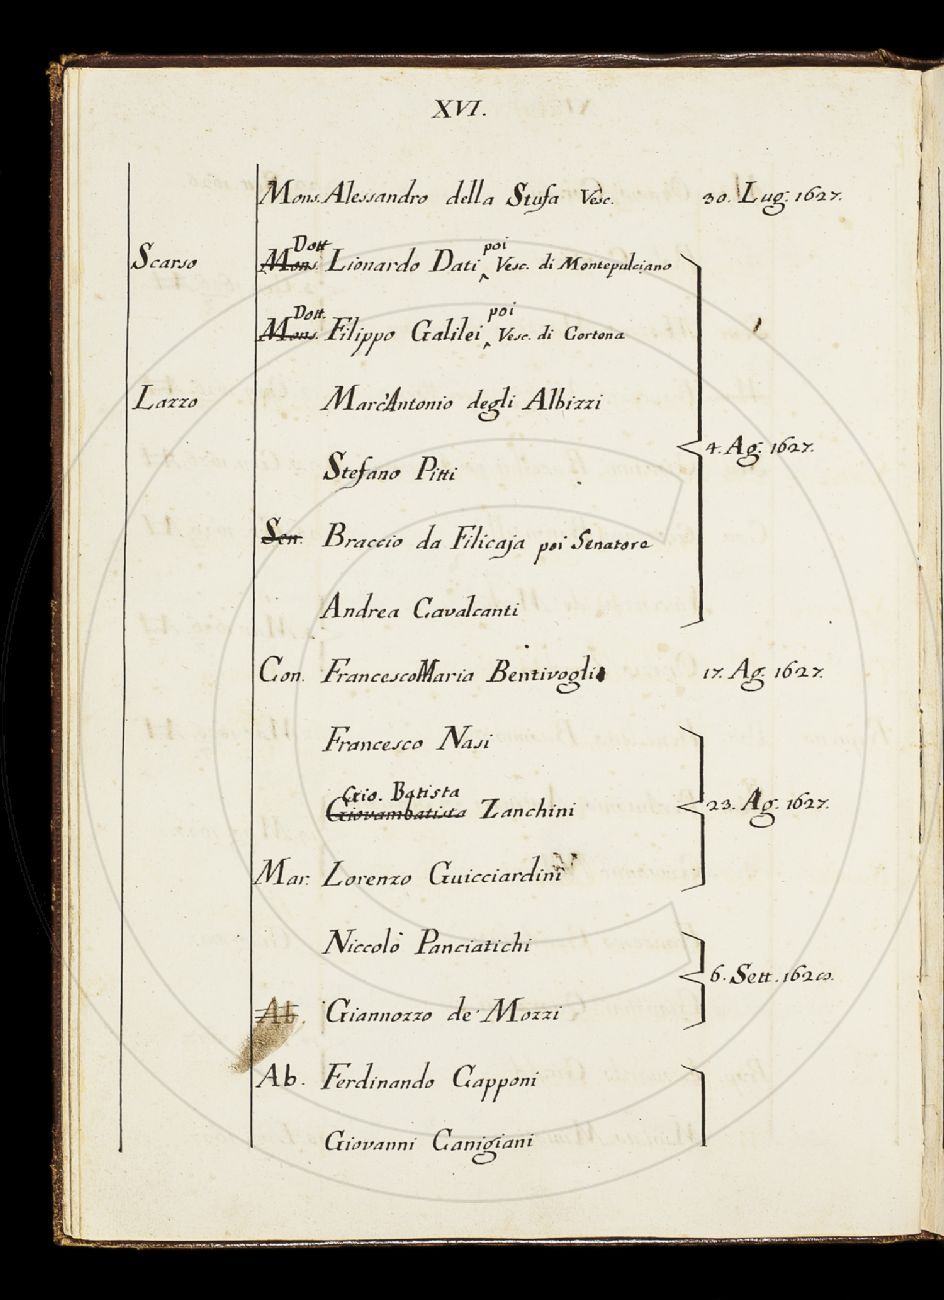 XVI.
Mons. Alessandro della Stufa Vesc. 30. Lug. 1627.
Dott poi
Scarso Mons. Lionardo Dati Vesc. di Montepulciano
Dott. poi
Mons. Filippo Galilei Vesc. di Cortona
Lazzo Marc'Antonio degli Albizzi
4. Ag. 1627.
Stefano Pitti
Sen. Braccio da Filicaja poi Senatore
Andrea Cavalcanti
Con. Francesco Maria Bentivogli 17. Ag. 1627.
Francesco Nasi
Gio. Batista
Giovambatista Zanchini 23. Ag. 1627.
Mar. Lorenzo Guicciardini
Niccolò Panciatichi
6. Sett.
Ab. Giannozzo de' Mozzi
Ab. Ferdinando Capponi
Giovanni Canigiani